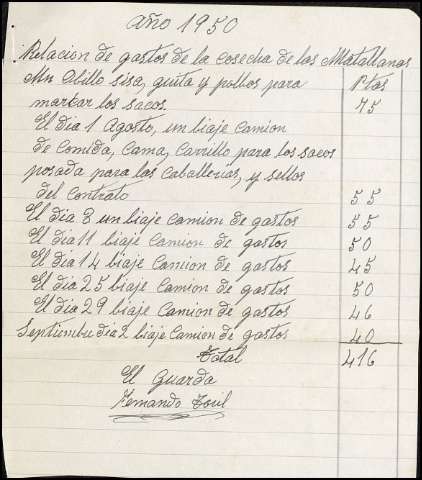 año 1950
Relacion de gastos de la cosecha de las Matallanas
Un Obillo lisa, guita y polbos para Ptas
markar los sacos 75
El dia 1 Agosto, un biaje Camion
de Comida, Cama, Carrillo para los sacos
posada para las Caballerias, y sellos
del Contrato 55
El dia 3 un biaje Camion de gastos 55
El dia 11 biaje Camion de gastos 50
El dia 14 biaje Camion de gastos 45
El dia 25 biaje Camion de gastos 50
El dia 29 biaje Camion de gastos 46
Septiembre dia 2 biaje Camion de gastos 40
Total 416
El Guarda
Fernando